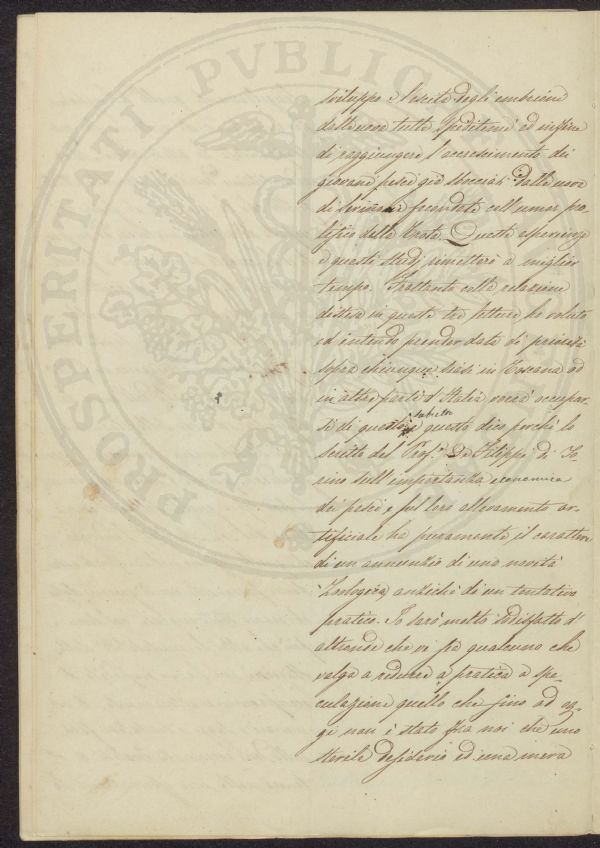 PROSPERITATI PVBLIC
sviluppo e nascita degli embrioni
dalle uova tutta speditami ed infine
di raggiungere l'accrescimento dei
giovani pesci già sbocciati dalle uova
di fecondate coll'umor pro-
lifico della Trota. Queste esperienze
e questi studj rimetterò a miglior
tempo. Frattanto colla relazione
distesa in queste tre lettere ho voluto
ed intendo prender data di priorità
sopra chiunque siasi in Toscana od
in altre parti d'Italia vorrà occupar-
si di questo subietto e questo dico perchè lo
scritto del Prof.r De Filippi di To-
rino sull'importanza economica
dei pesci e sul loro allevamento ar-
tificiale ha puramente il carattere
di un annunzio di una novità
Zoologica, anzichè di un tentativo
pratico. Io sarò molto sodisfatto d'
altronde che vi sia qualcuno che
valga a ridurre a pratica a spe-
culazione quello che fino ad og-
gi non è stato fra noi che uno
sterile desiderio ed una mera